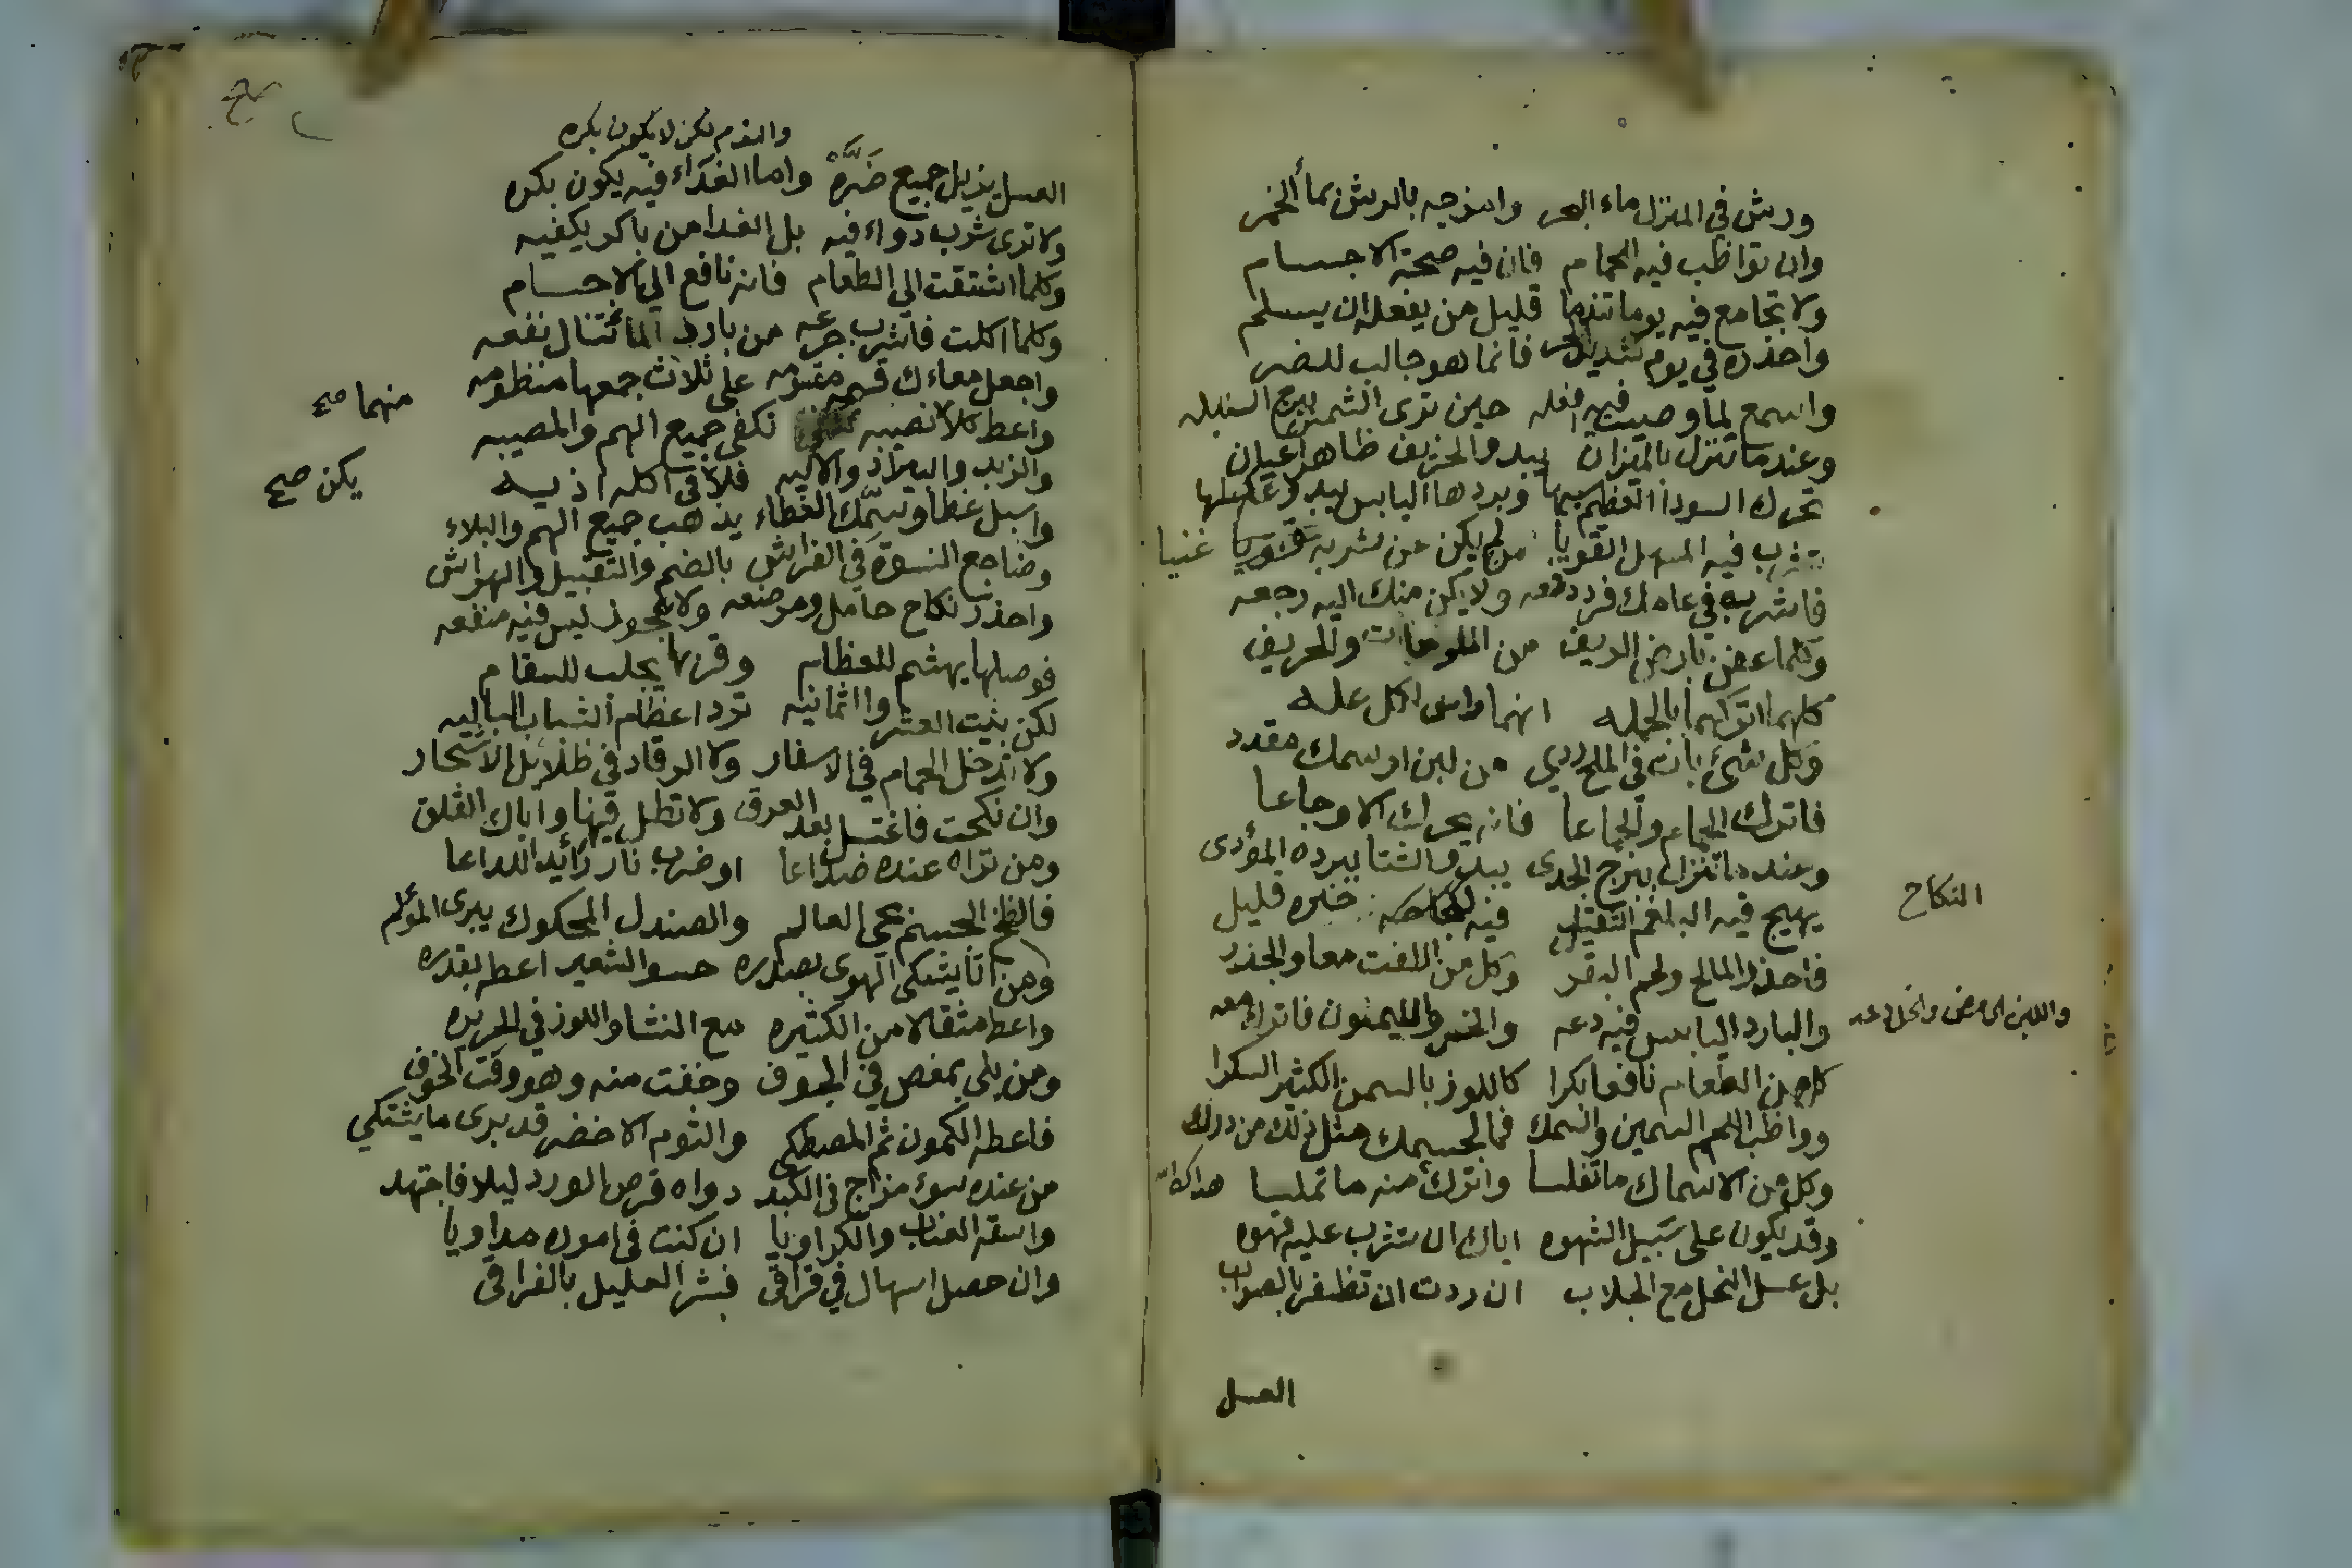 ورش في المنزل ماء البحر وامزجه بالرش بماء الخمر
وان تواظب فيه الحمام فان فيه صحة الاجسام
ولا تجامع فيه يوما تندما قليل من يفعله ان يسلم
واحذره في يوم شديد الحر فانما هو جالب للضر
واسمع لما وصيت فيه افعله حين ترى الشمس ببرج السنبله
وعند ما تنزل بالميزان يبدو الخريف ظاهرا عيان
تحرك السودا العظيم سيما وبردها اليابس يبدو
يشرب فيه المسهل القويا من لم يكن عن شربه غنيا
فاشربه في عامك فرد دفعه ولا يكن منك اليه رجعه
وكلما عفن بارض الريف من الملوحات والحريف
كلهما اتركهما بالجمله انهما راس لكل عله
وكل شيء بان في الملح ردي من لبن او سمك مقدد
فاترك الحمام والجماعا فانه يحرك الاوجاعا
وعند ما تنزل ببرج الجدى يبدو الشتا ببرده المؤدى
يهيج فيه البلغم الثقيل فيه خيره قليل
النكاح
فاحذر المالح ولحم البقر وكل من اللفت معا والجذر
والبارد اليابس فيه دعه والخس والليمون فاترك معه
واللبن الحامض والخل دعه
كل من الطعام نافعا بكرا كاللوز بالسمن الكثير السكرا
وواظب اللحم السمين والسمك فما لجسمك مثل ذلك من درك
وكل من الاسماك ما تفلسا واترك منه ما تملسا
وقد يكون على سبيل الشهوه اياك ان تشرب عليه قهوه
بل عسل النحل مع الجلاب ان ردت ان تظفر بالصواب
العسل
والنوم لكن لا يكون بكره
العسل يزيل جميع ضره واما الغداء فيه يكون بكره
ولا ترى شرب دواء فيه بل الغدا من باكر يكفيه
وكلما اشتقت الي الطعام فانه نافع الي الاجسام
وكلما اكلت فاشرب جرعه من بارد الماء تنال نفعه
واجعل معاءك قسمه مقسومه على ثلاث جمعها منظومه
واعط كلا نصيبه تكفى جميع الهم والمصيبه
منهما صح
والزبد والسلاذ والاليه فلا في اكله اذيه
يكن صح
واسبل غطا وتسمك الغطاء يذهب جميع الهم والبلاء
وضاجع النسوة في الفراش بالضم والتقبيل والهراش
واحذر نكاح حامل ومرضعه ولا عجوز ليس فيه منفعه
فوصلها يهشم للعظام وقربها يجلب للسقام
لكن بنيت العشر والثمانيه ترد اعظام الشباب الباليه
ولا تدخل الحمام في الاسفار ولا الرقاد في ظلائل الاشجار
وان نكحت فاغتسل بعد العرق ولا تطل فيها واياك القلق
ومن تراه عنده صداعا او ضربه نار زائد اللداعا
فالطخ الجسم بحي العالم والصندل المحكوك يبرى المؤلم
ومن اتا يشكى الهوى بصدره حسو الشعير اعطه بقدره
واعط مثقالا من الكثيره مع النشا واللوز في الحريره
ومن بلى بمغص في الجوف وخفت منه وهو وقت الخوف
فاعطه الكمون ثم المصطكى والثوم الاخضر قد يبرى ما يشتكي
من عنده سوء مزاج في الكبد دواه قرص الورد ليلا فاجتهد
واسقه العناب والكراويا ان كنت في اموره مداويا
وان حصل اسهال في فراقى فبشر العليل بالفراقى